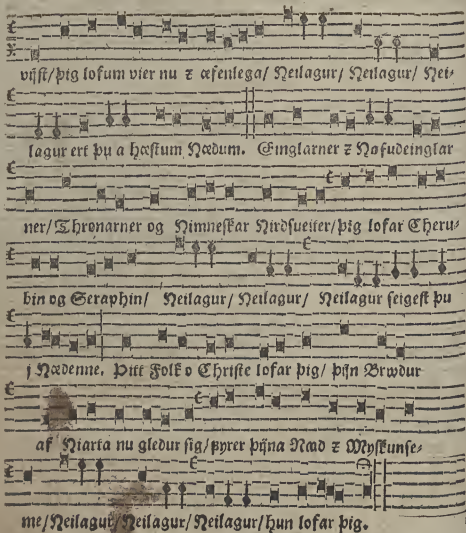 vijst/þig lofum vier nu ꝛ æfenlega/ Heilagur/ Heilagur/ Hei-
lagur ert þu a hæstum Hædum. Einglarner ꝛ Hofudeinglar
ner/ Thronarner og Himneskar Hirdsueiter/ þig lofar Cheru-
bin og Seraphin/ Heilagur/ Heilagur/ Heilagur seigest þu
j Hædenne. Pitt Folk o Christe lofar þig/ þijn Brwdur
af Hiarta nu gledur sig/ fyrer þijna Naad ꝛ Myskunse-
me/ Heilagur/ Heilagur/ Heilagur/ hun lofar þig.